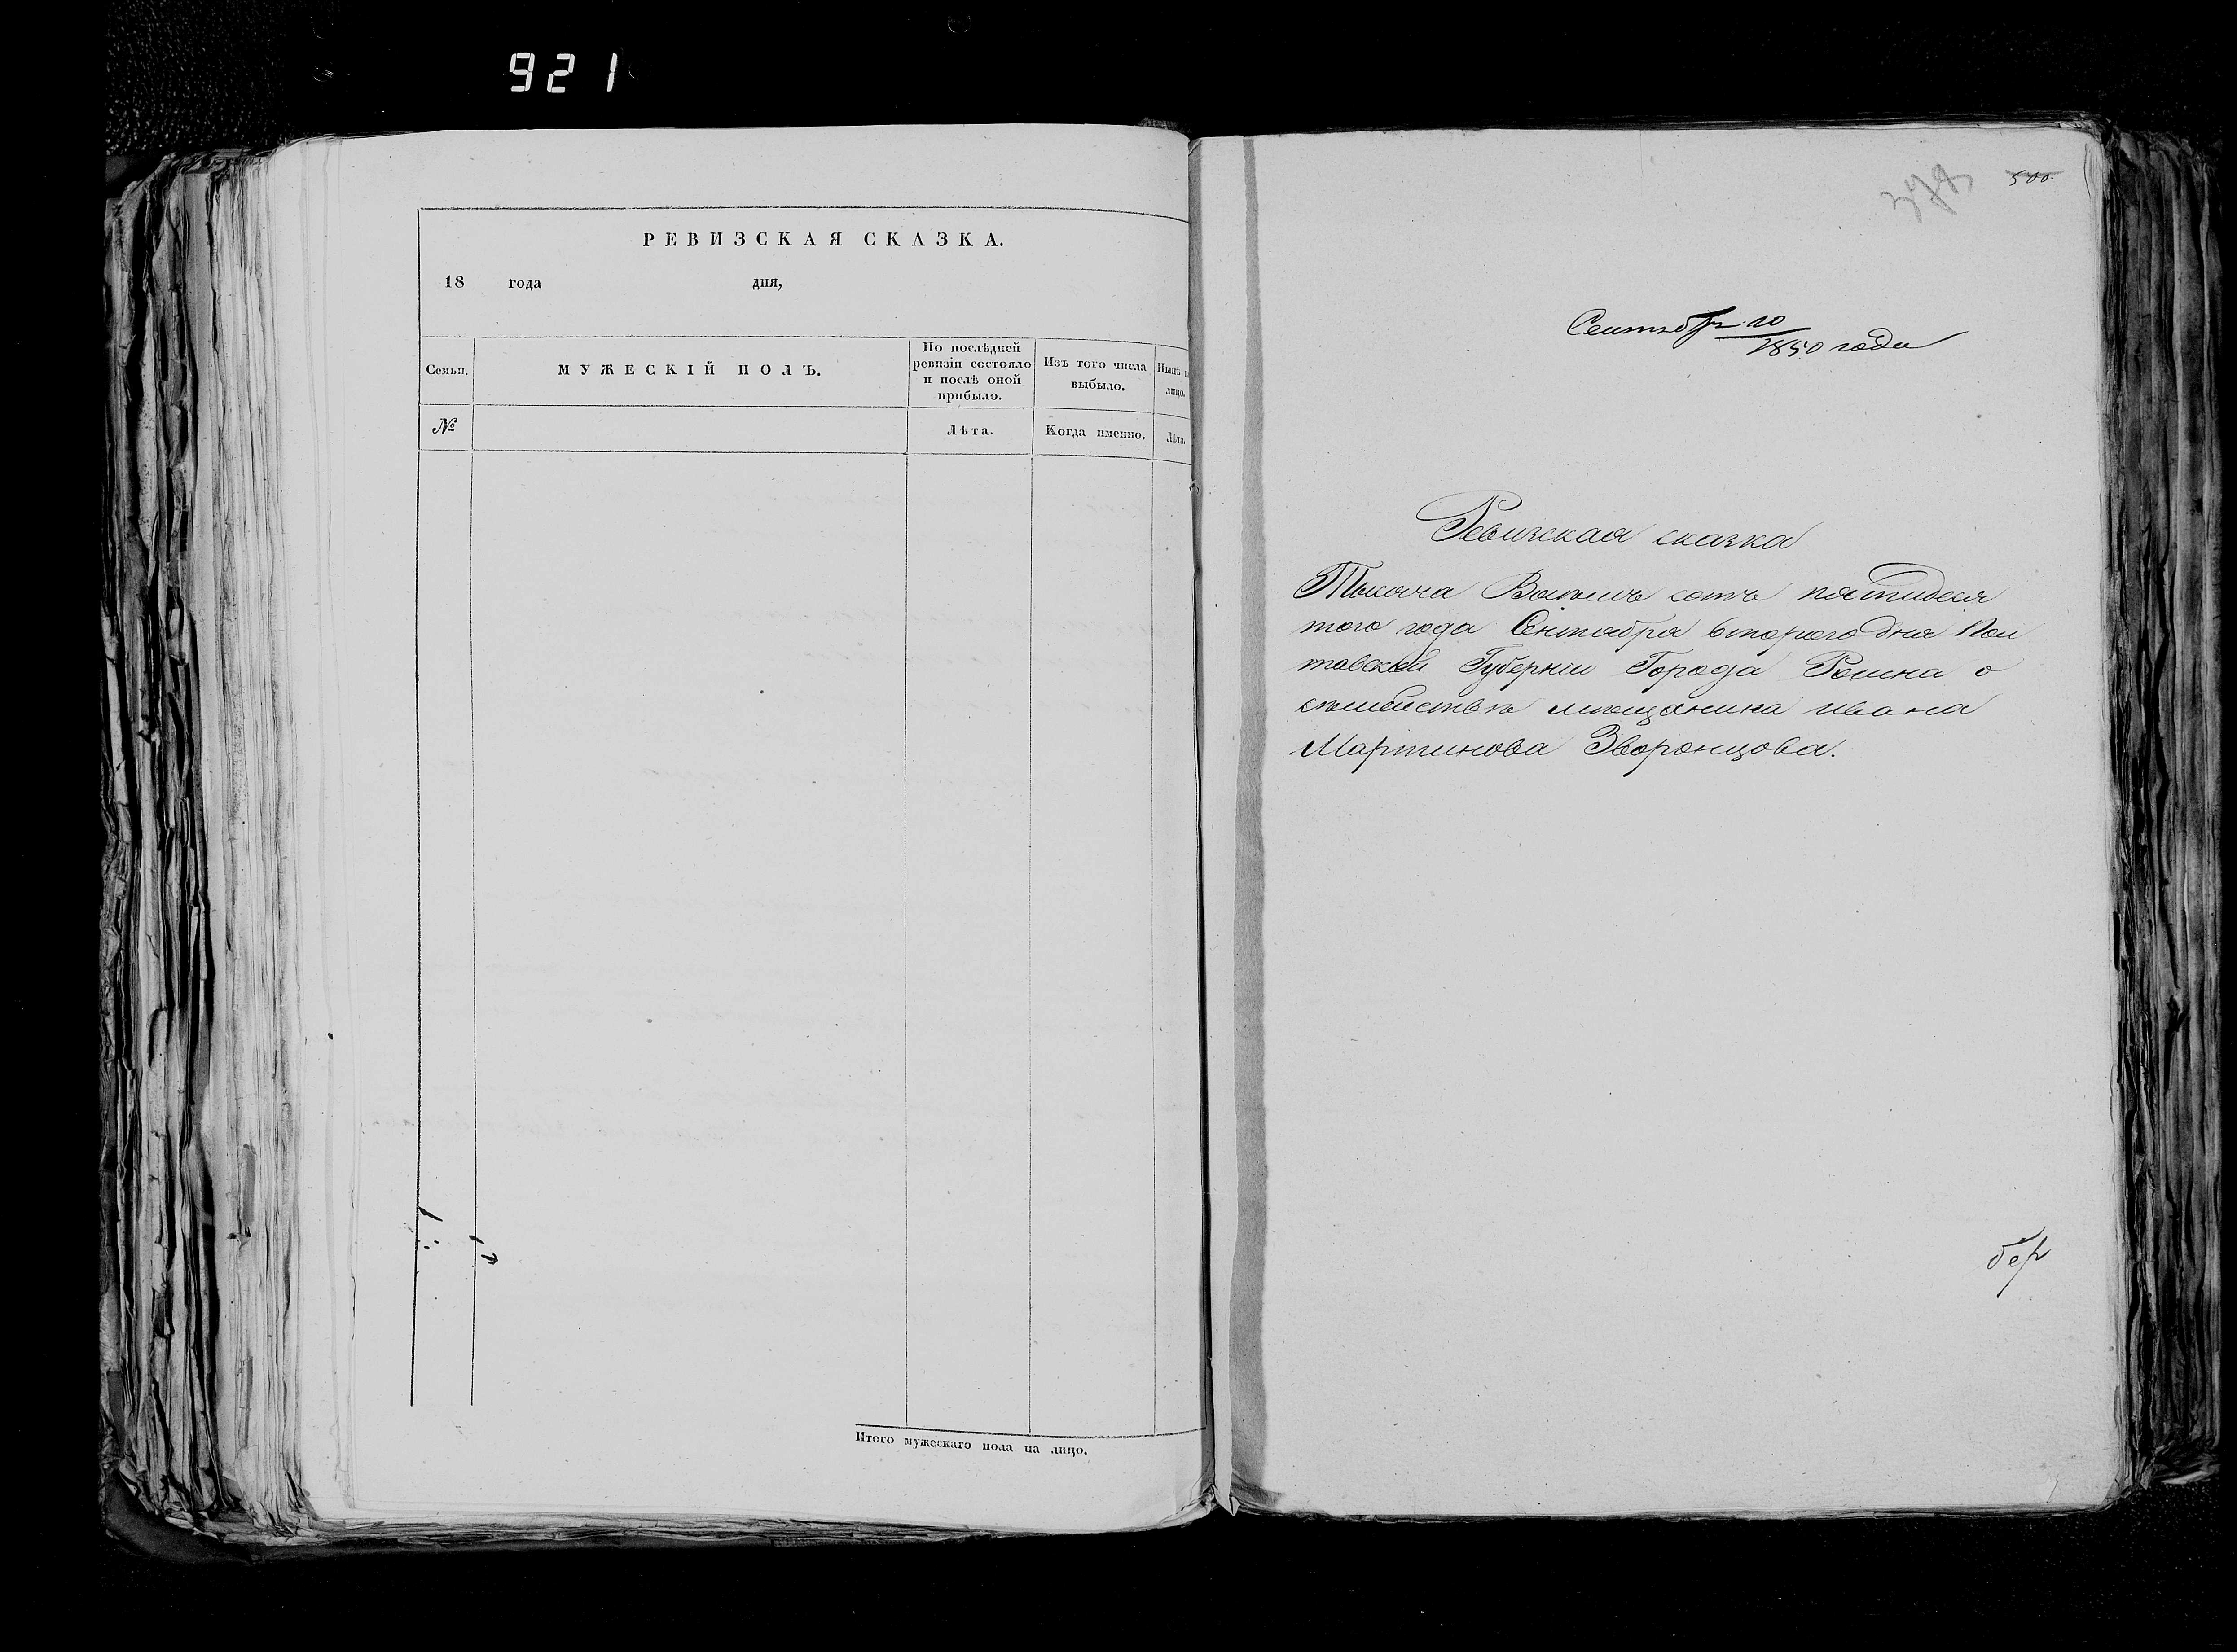 921
РЕВИЗСКАЯ СКАЗКА.
18 года дня,
Семьи.
МУЖЕСКІЙ ПОЛЪ.
По послѣдней
ревизіи состояло
и послѣ оной
прибыло.
Изъ того числа
выбыло.
Нынѣ на
лицо.
№
Лѣта.
Когда именно.
Лѣта.
Итого мужескаго пола на лицо.
500.
Сентября 10
1850 года
Ревизская сказка
Тысяча Восемь сотъ пятидеся
того года Сентября второго дня Пол
тавской Губернии Города Ромна о
семействѣ мещанина ивана
Мартинова Зворонцова.